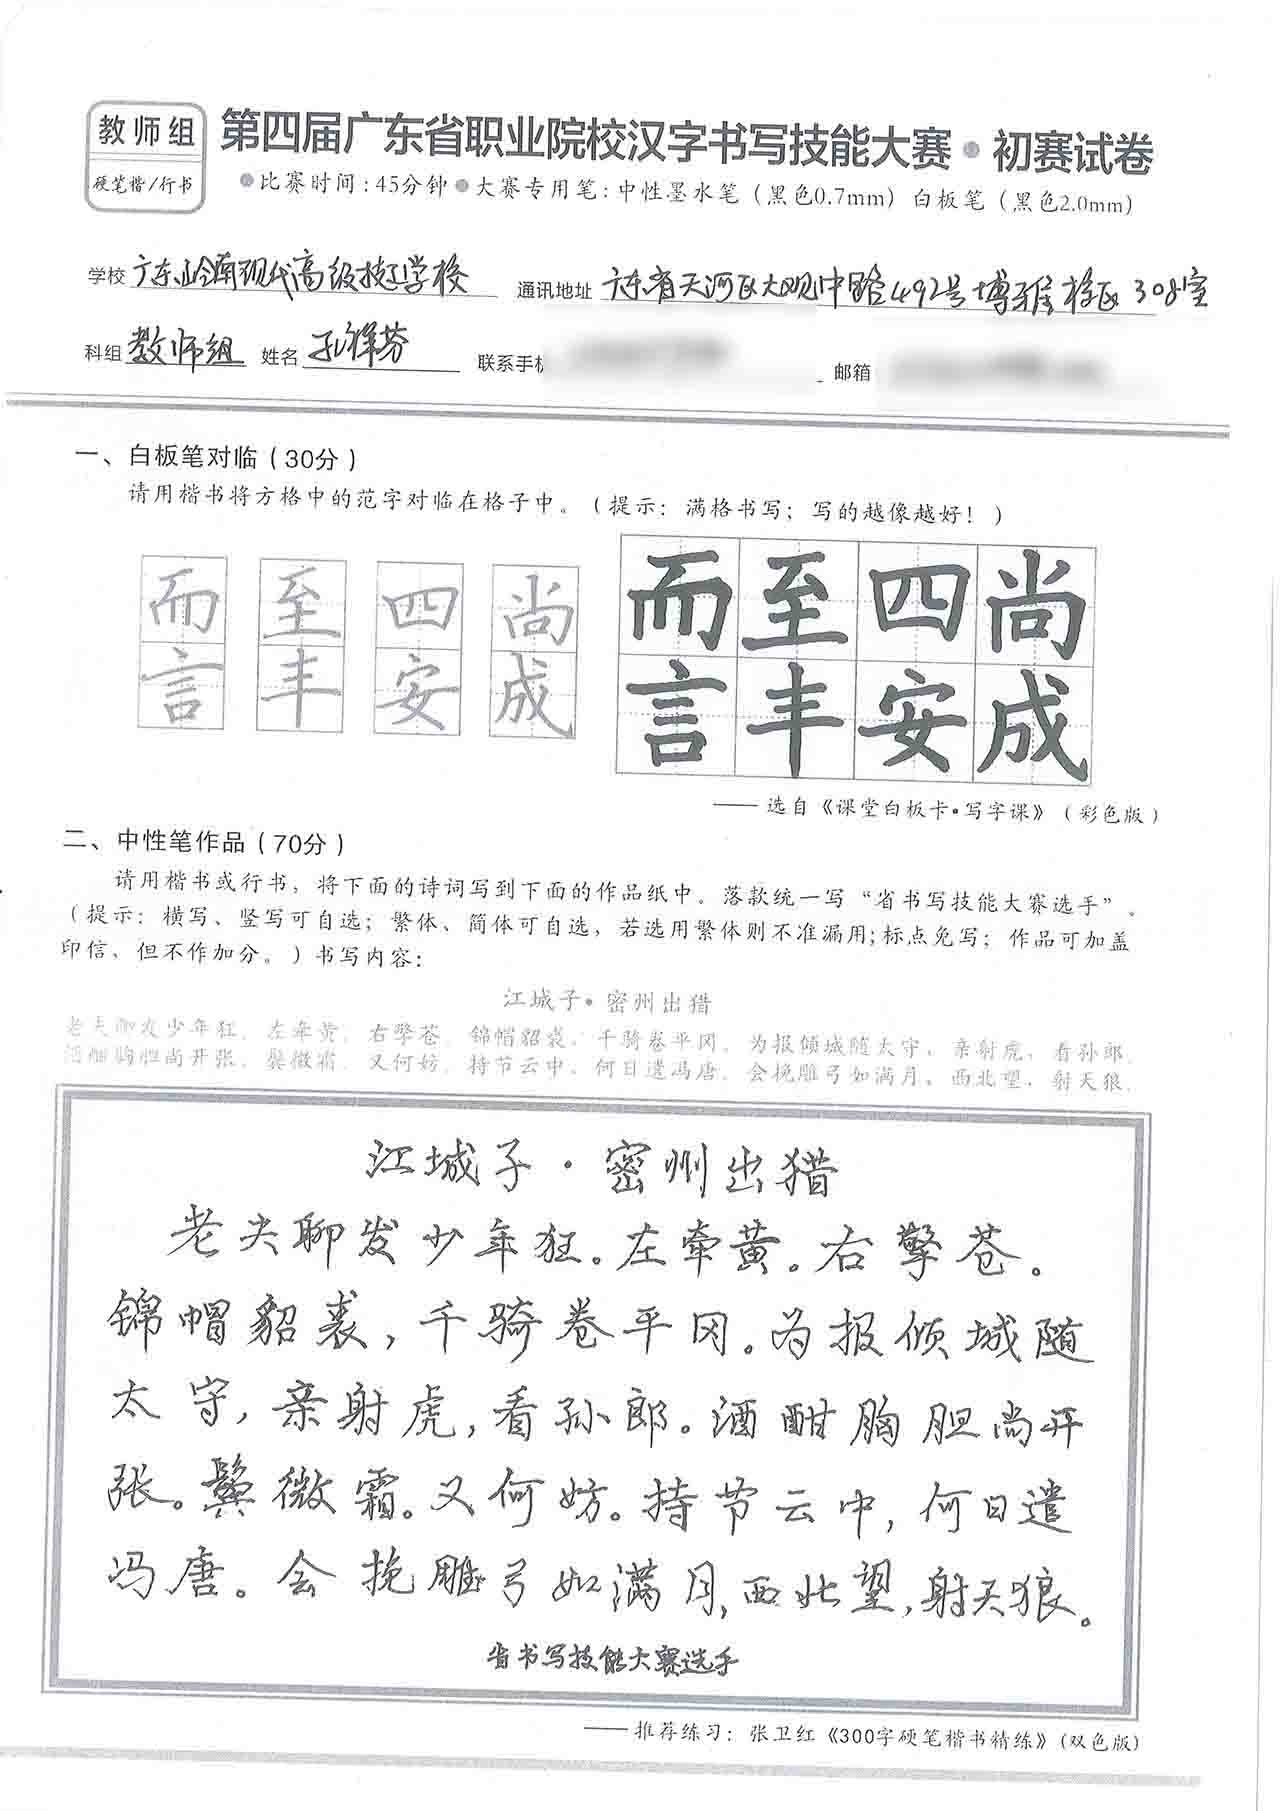 教师组
硬笔楷/行书
第四届广东省职业院校汉字书写技能大赛•初赛试卷
•比赛时间:45分钟•大赛专用笔:中性墨水笔（黑色0.7mm）白板笔（黑色2.0mm）
学校 广东岭南现代高级技工学校 通讯地址 广东省天河区大观中路492号博雅校区308室
科组 教师组 姓名 孔祥芬 联系手机 邮箱
一、白板笔对临（30分）
请用楷书将方格中的范字对临在格子中。（提示：满格书写；写的越像越好！）
而 至 四 尚 而 至 四 尚
言 丰 安 成 言 丰 安 成
——选自《课堂白板卡•写字课》（彩色版）
二、中性笔作品（70分）
请用楷书或行书，将下面的诗词写到下面的作品纸中。落款统一写“省书写技能大赛选手”。
（提示：横写、竖写可自选；繁体、简体可自选，若选用繁体则不准漏用;标点免写；作品可加盖
印信、但不作加分。）书写内容：
江城子•密州出猎
老夫聊发少年狂，左牵黄，右擎苍，锦帽貂裘，千骑卷平冈，为报倾城随太守，亲射虎，看孙郎，
酒酣胸胆尚开张，鬓微霜，又何妨，持节云中，何日遣冯唐，会挽雕弓如满月，西北望，射天狼，
江城子·密州出猎
老夫聊发少年狂。左牵黄。右擎苍。
锦帽貂裘，千骑卷平冈。为报倾城随
太守，亲射虎，看孙郎。酒酣胸胆尚开
张。鬓微霜。又何妨。持节云中，何日遣
冯唐。会挽雕弓如满月，西北望，射天狼。
省书写技能大赛选手
——推荐练习：张卫红《300字硬笔楷书精练》(双色版)